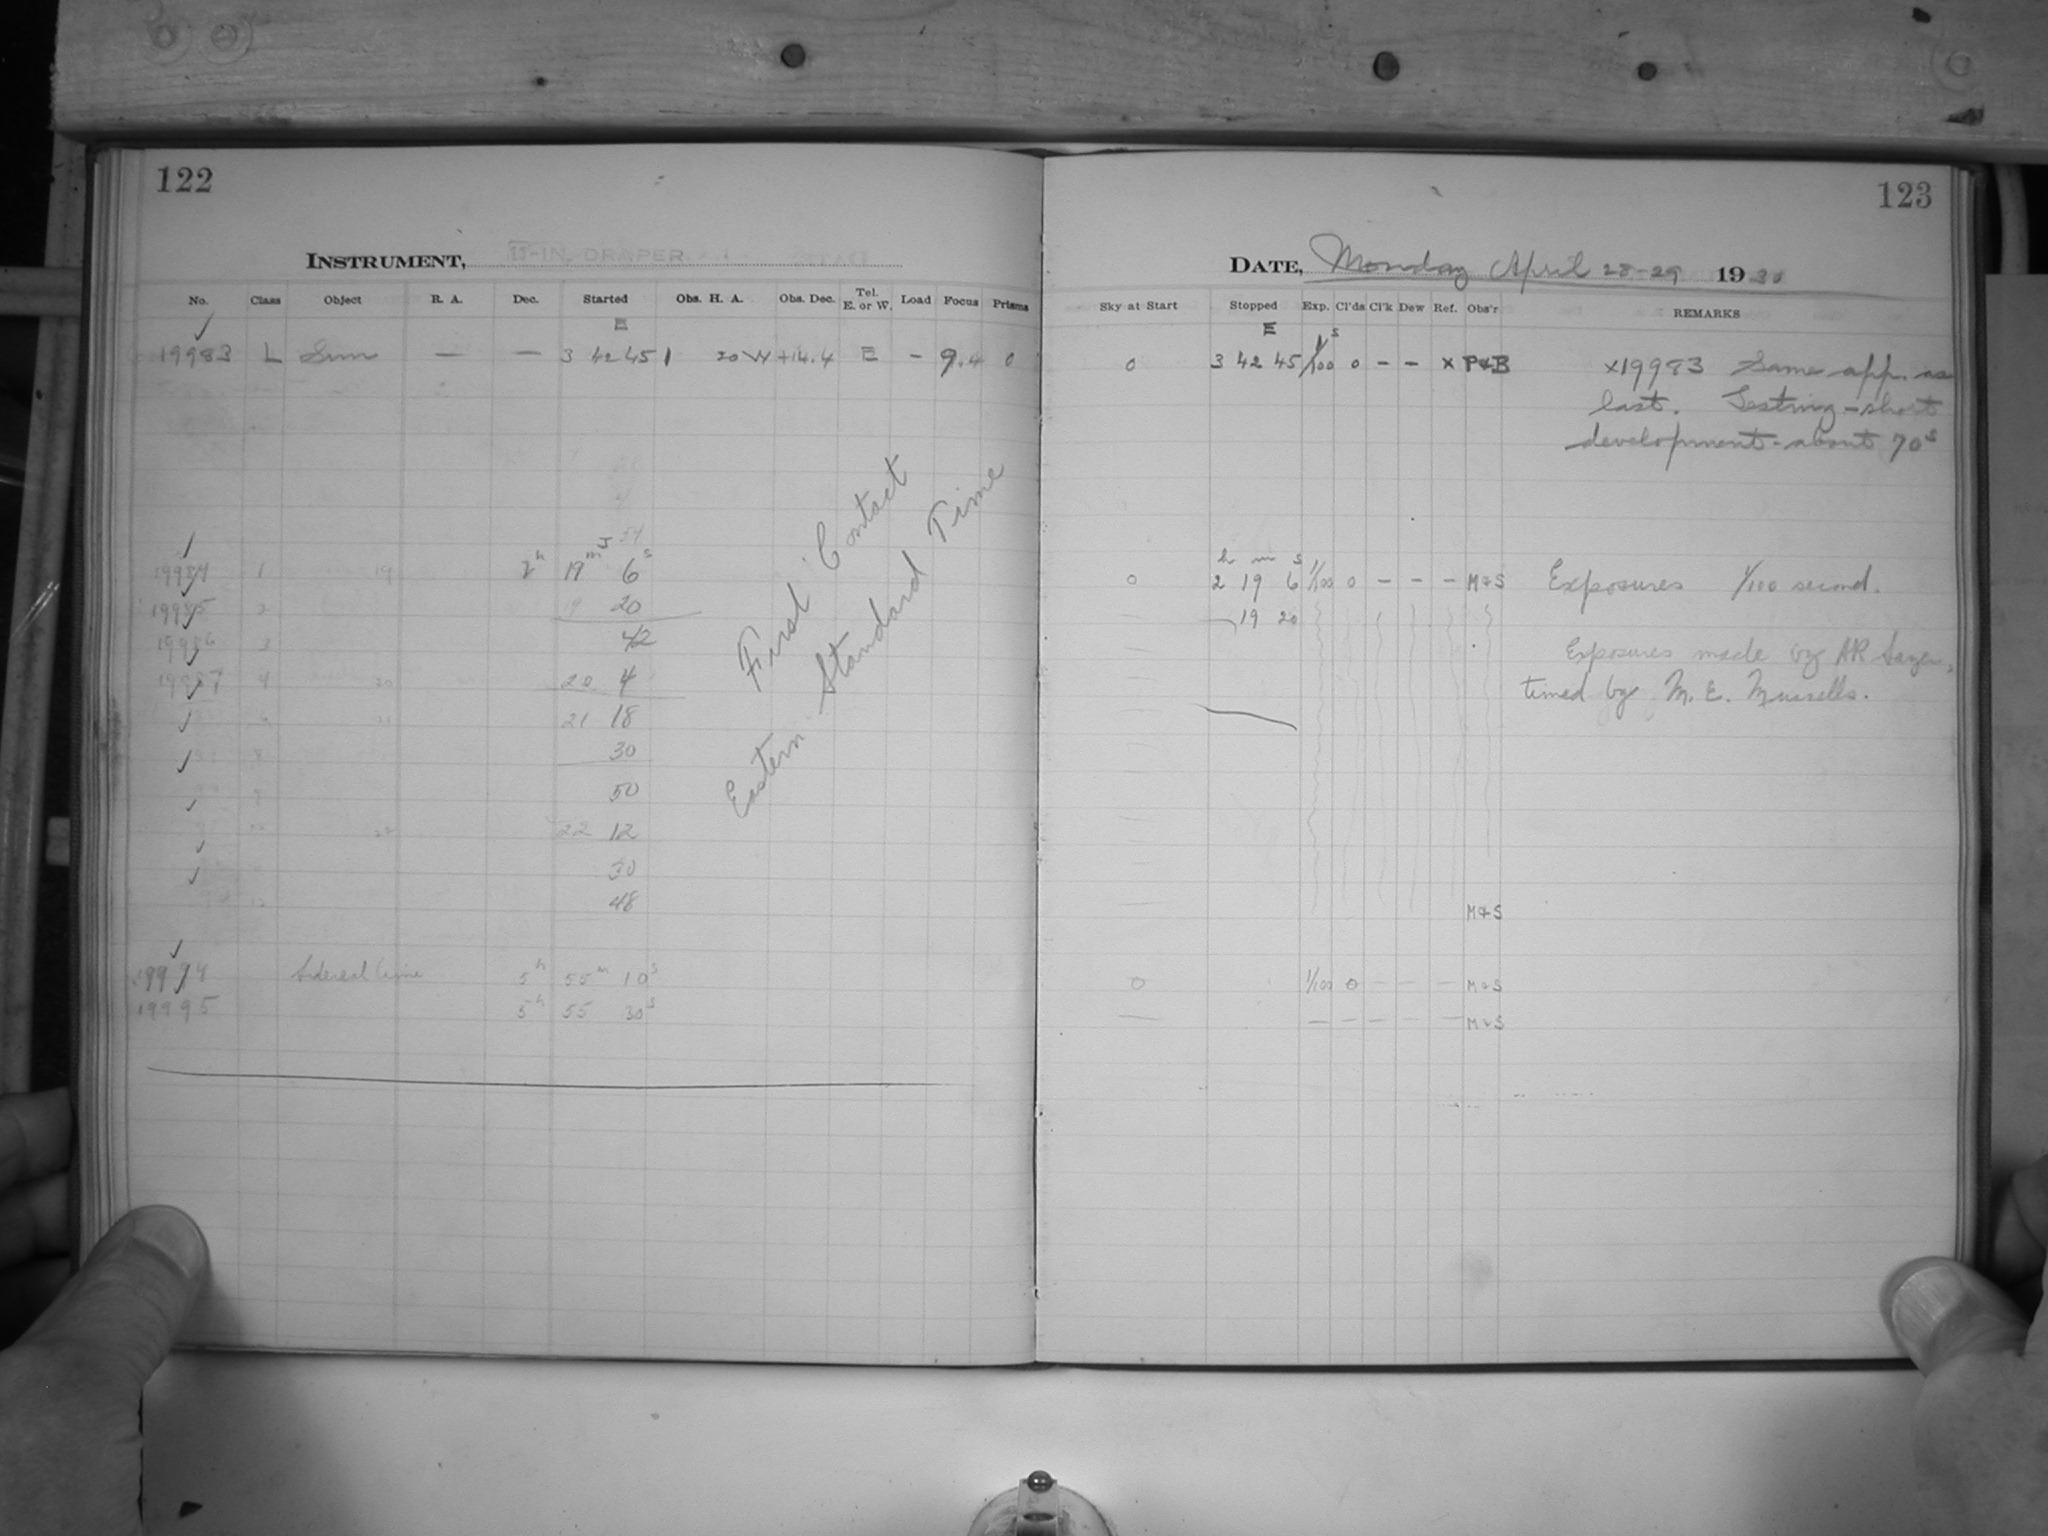 122
INSTRUMENT, -IN. DRAPER
No. Class Object R. A. Dec. Started Obs. H. A. Obs. Dec. Tel. E. or W. Load Focus Prisms
E
19983 L Sun — — 3 42 45 1 20 W +14.4 E – 9.4 0
First Contact
Eastern Standard Time
19984 1 19 2h 19m 6s
19985 2 19 20
19986 3 42
19987 4 20 20 4
21 18
30
50
22 12
30
48
19994 Sidereal time 5h 55m 10s
19995 5h 55 30s
123
DATE, Monday April 28-29 1930
Sky at Start Stopped Exp. Cl'ds Cl'k Dew Ref. Obs'r REMARKS
E s
0 3 42 45 1/100 0 – – x P&B x19983 Same app. as
last. Testing – short
development – about 70s
h m s
0 2 19 6 1/100 0 – – – M&S Exposures 1/100 second.
19 20
Exposures made by AR
timed by M. E. Mussells.
M&S
0 1/100 0 – – – M&S
— – – – – – M&S